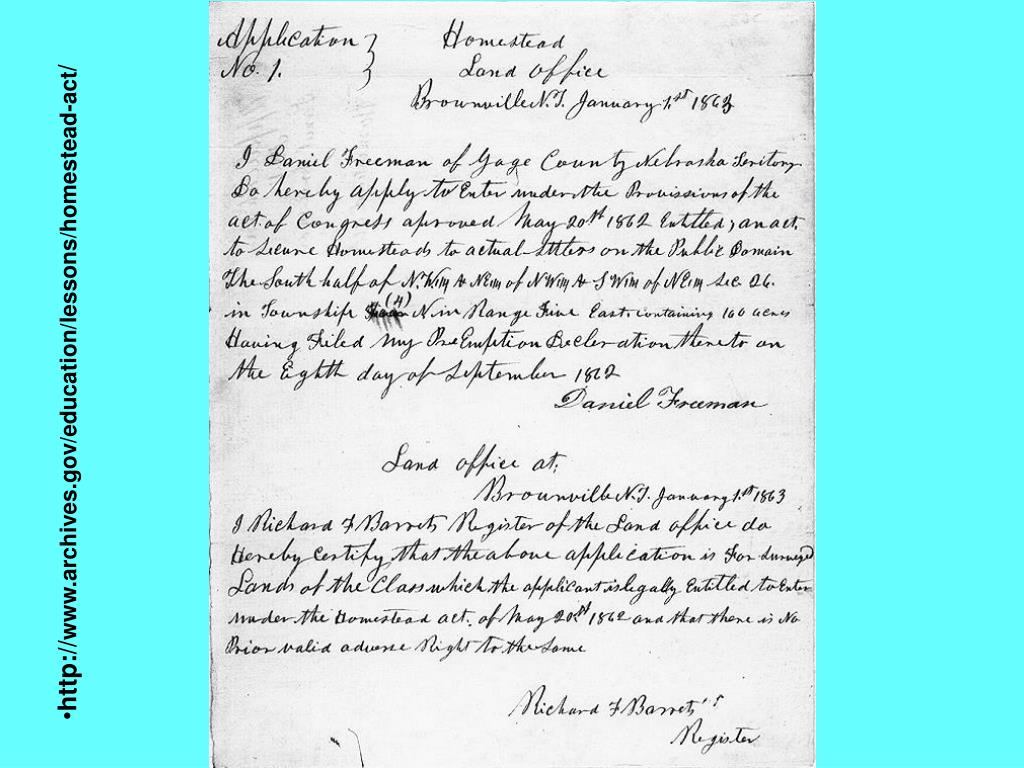 •http://www.archives.gov/education/lessons/homestead-act/
Application } Homestead
No. 1. Land Office
Brownville N.T. January 1.st 1863
I Daniel Freeman of Gage County Nebraska Teritory
Do hereby apply to Enter under the Provissions of the
act of Congress aproved May 20st 1862 Entitled, an act
to Secure Homesteads to actual Settlers on the Public Domain
The South half of N.W¼ & NE¼ of NW¼ & SW¼ of NE¼ Sec 26.
in Township (4) N in Range Five East. containing 160 acres
Having Filed my PreEmption Decleration thereto on
the Eighth day of September 1862
Daniel Freeman
Land office at;
Brownville N.T. January 1.st 1863
I Richard F Barrets Register of the Land office do
Hereby certify, that the above application is For Surveyed
Lands of the Class which the applicant is legally Entitled to Enter
under the Homestead act. of May 20st 1862 and that there is No
Prior valid adverse Right to the Same
Richard F Barrets
Register